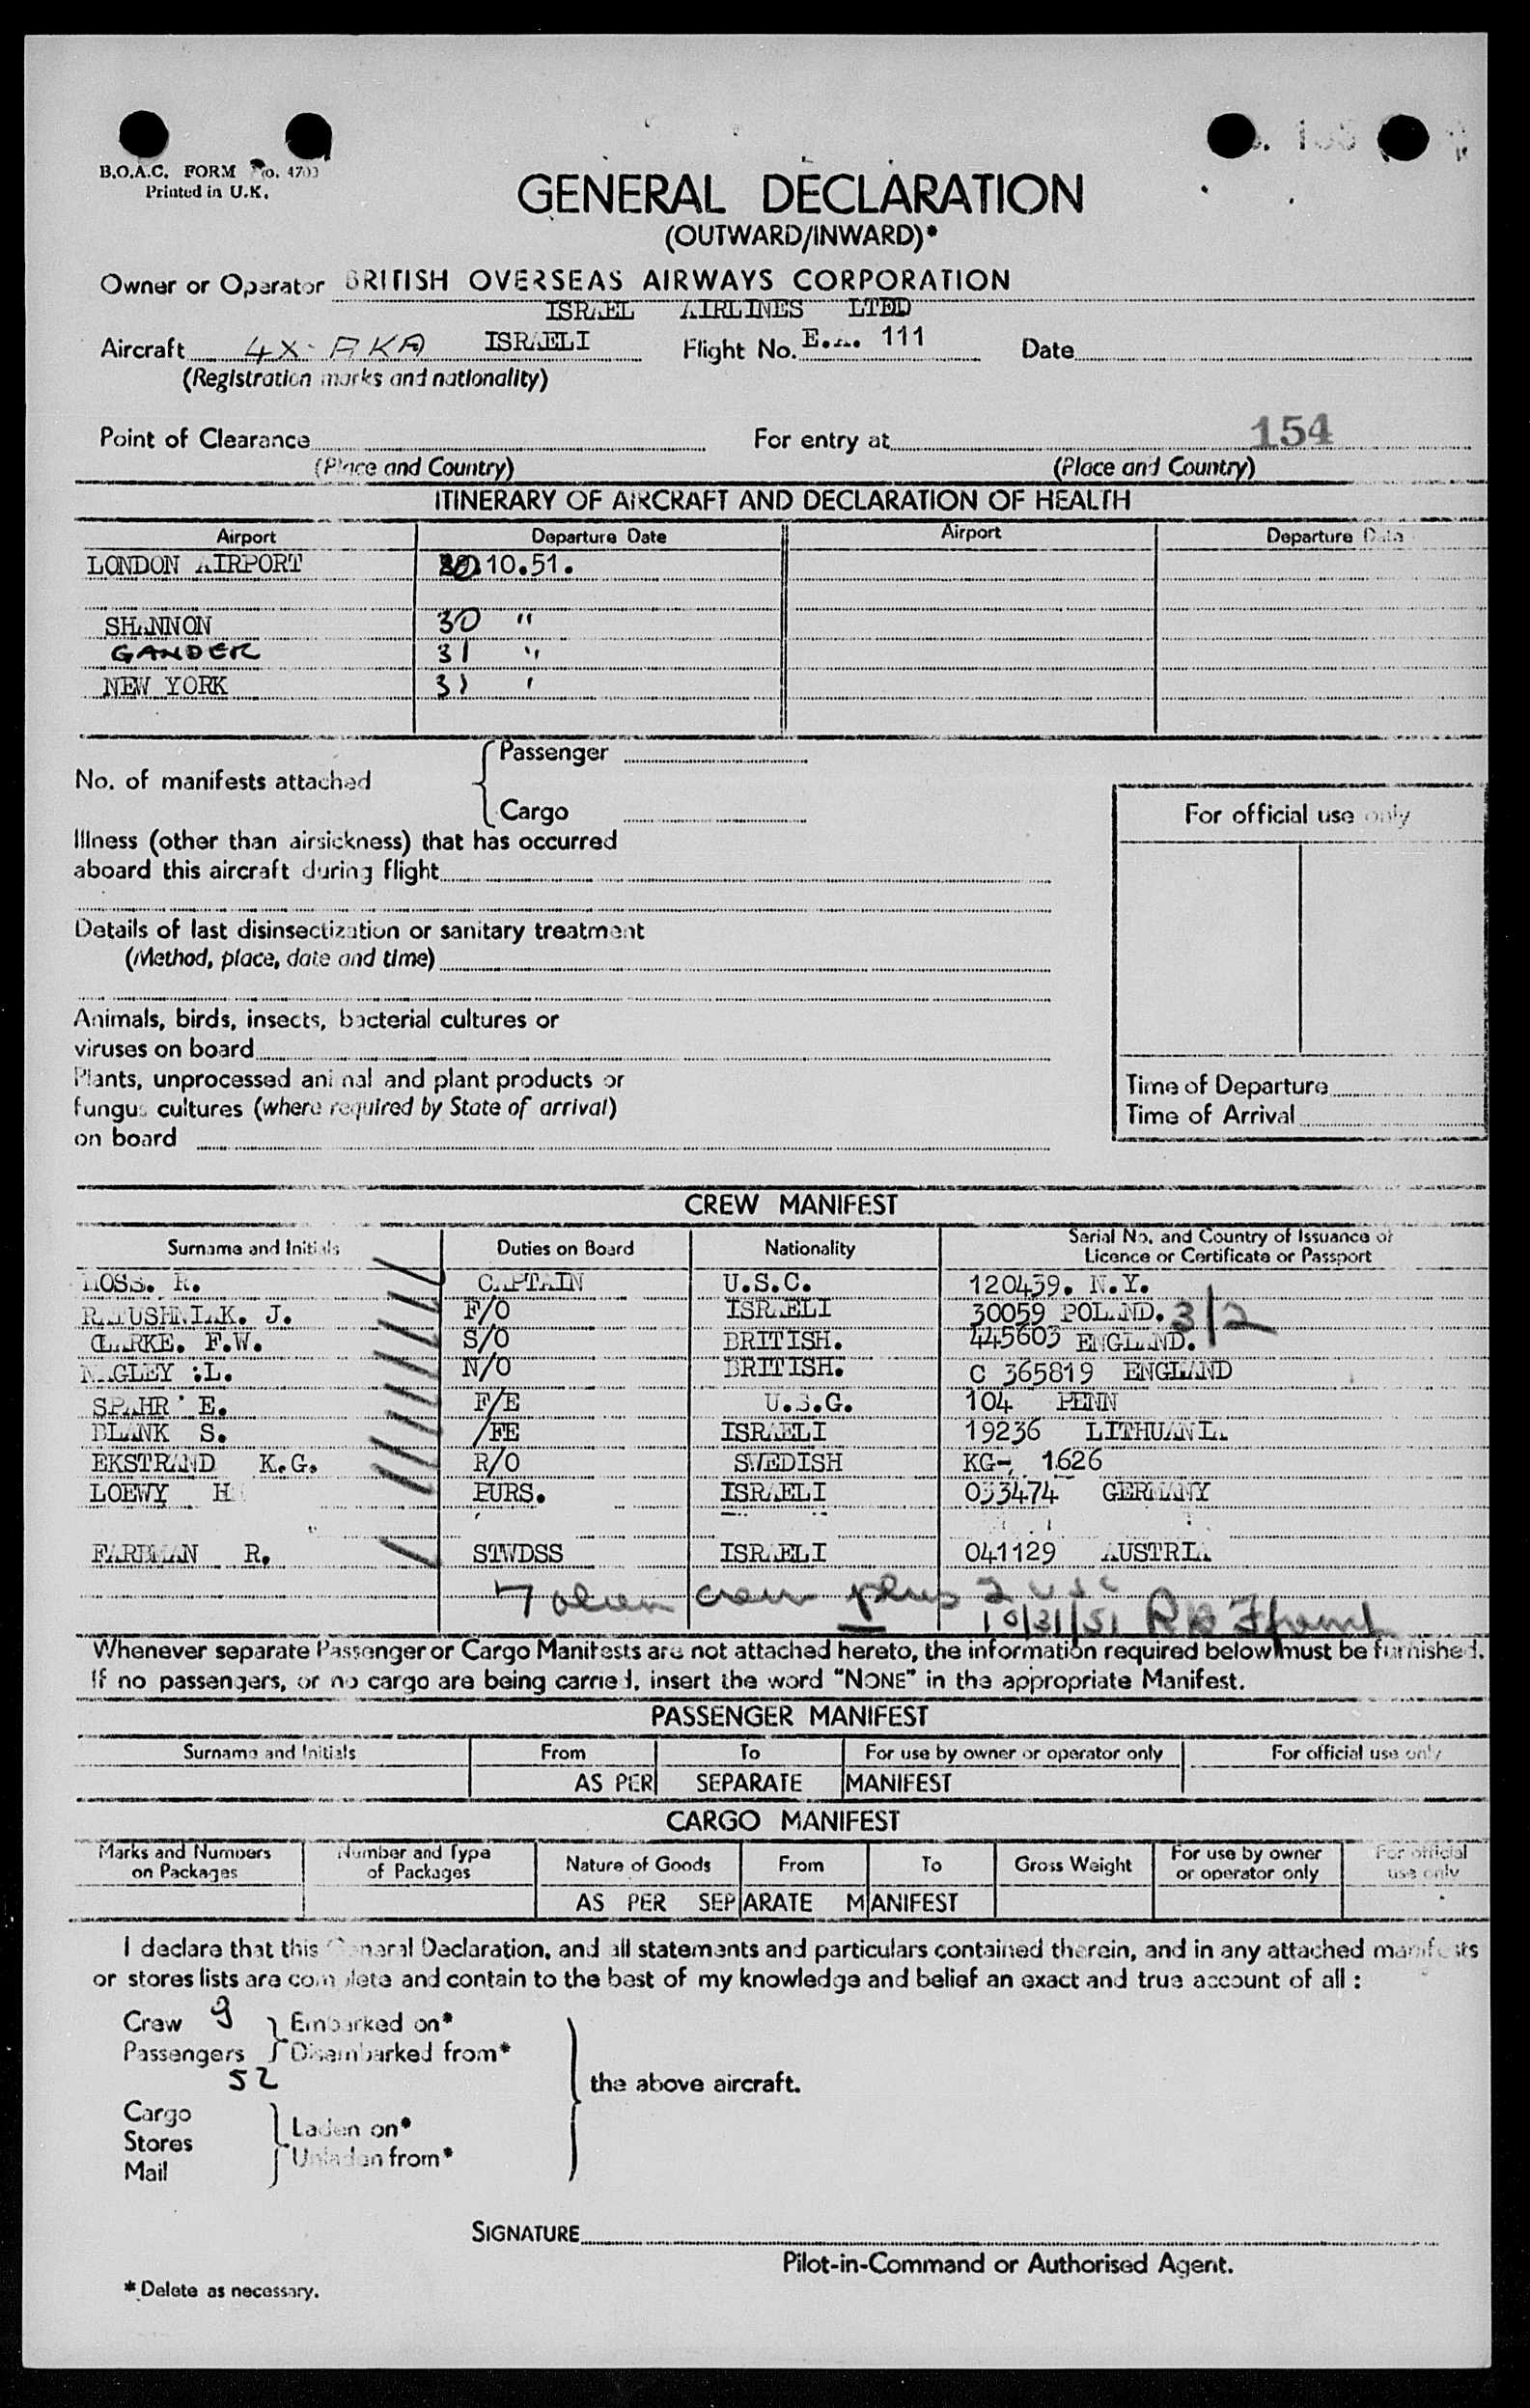 B.O.A.C. FORM No. 4703
Printed in U.K.
GENERAL DECLARATION
(OUTWARD/INWARD)*
Owner or Operator BRITISH OVERSEAS AIRWAYS CORPORATION
ISRAEL AIRLINES LTDD
Aircraft 4X-AKA ISRAELI Flight No. E.A. 111 Date
(Registration marks and nationality)
Point of Clearance For entry at 154
(Place and Country) (Place and Country)
ITINERARY OF AIRCRAFT AND DECLARATION OF HEALTH
Airport Departure Date Airport Departure Date
LONDON AIRPORT 10.51.
SHANNON 30 "
GANDER 31 "
NEW YORK 31 '
No. of manifests attached
Passenger
Cargo
For official use only
Illness (other than airsickness) that has occurred
aboard this aircraft during flight
Details of last disinsectization or sanitary treatment
(Method, place, date and time)
Animals, birds, insects, bacterial cultures or
viruses on board
Plants, unprocessed animal and plant products or
fungus cultures (where required by State of arrival)
on board
Time of Departure
Time of Arrival
CREW MANIFEST
Surname and Initials Duties on Board Nationality Serial No. and Country of Issuance of
Licence or Certificate or Passport
MOSS. R. CAPTAIN U.S.C. 120439. N.Y.
RATUSHNIAK. J. F/O ISRAELI 30059 POLAND. 3/2
CLARKE. F.W. S/O BRITISH. 445603 ENGLAND.
NAGLEY :L. N/O BRITISH. C 365819 ENGLAND
SPAHR E. F/E U.S.C. 104 PENN
BLANK S. /FE ISRAELI 19236 LITHUANIA
EKSTRAND K.G. R/O SWEDISH KG-, 1626
LOEWY H PURS. ISRAELI 033474 GERMANY
FARBMAN R. STWDSS ISRAELI 041129 AUSTRIA
7 alien crew plus 2 usc
10/31/51
Whenever separate Passenger or Cargo Manifests are not attached hereto, the information required below must be furnished.
If no passengers, or no cargo are being carried, insert the word "NONE" in the appropriate Manifest.
PASSENGER MANIFEST
Surname and Initials From To For use by owner or operator only For official use only
AS PER SEPARATE MANIFEST
CARGO MANIFEST
Marks and Numbers on Packages Number and Type of Packages Nature of Goods From To Gross Weight For use by owner or operator only For official use only
AS PER SEPARATE MANIFEST
I declare that this General Declaration, and all statements and particulars contained therein, and in any attached manifests
or stores lists are complete and contain to the best of my knowledge and belief an exact and true account of all :
Crew 9 Embarked on*
Passengers Disembarked from*
52
the above aircraft.
Cargo
Stores Laden on*
Mail Unladen from*
SIGNATURE
Pilot-in-Command or Authorised Agent.
* Delete as necessary.